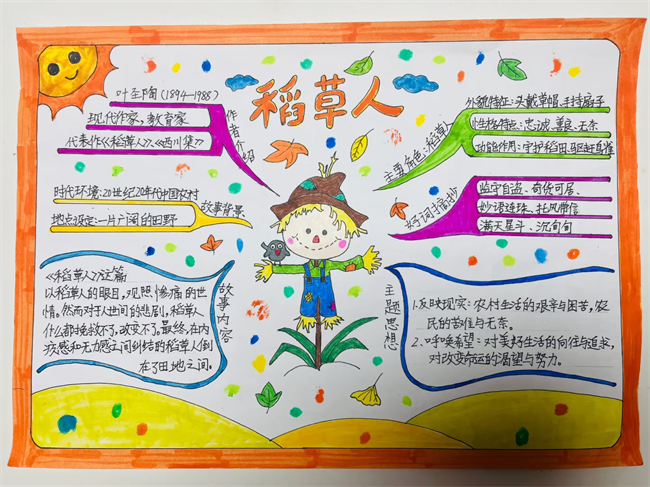 稻草人
叶至陶(1894-1988)
现代作家、教育家
代表作《稻草人》、《西川集》
作者介绍
外貌特征:头戴草帽、手持扇子
性格特征:忠诚、善良、无奈
功能作用:守护稻田、驱赶鸟雀
主要角色:稻草人
时代环境:20世纪20年代中国农村
地点设定:一片广阔的田野
故事背景
监守自盗、奇货可居、
妙语连珠、托风带信
满天星斗、沉甸甸
好词摘抄
《稻草人》这篇
以稻草人的眼目,观照惨痛的世
情。然而对于人世间的悲剧,稻草人
什么都拯救不了,改变不了。最终,在内
疚感和无力感之间纠结的稻草人倒
在了田地之间。
故事内容
主题思想
1.反映现实:农村生活的艰辛与困苦,农
民的苦难与无奈。
2、呼唤希望:对美好生活的向往与追求,
对改变命运的渴望与努力。